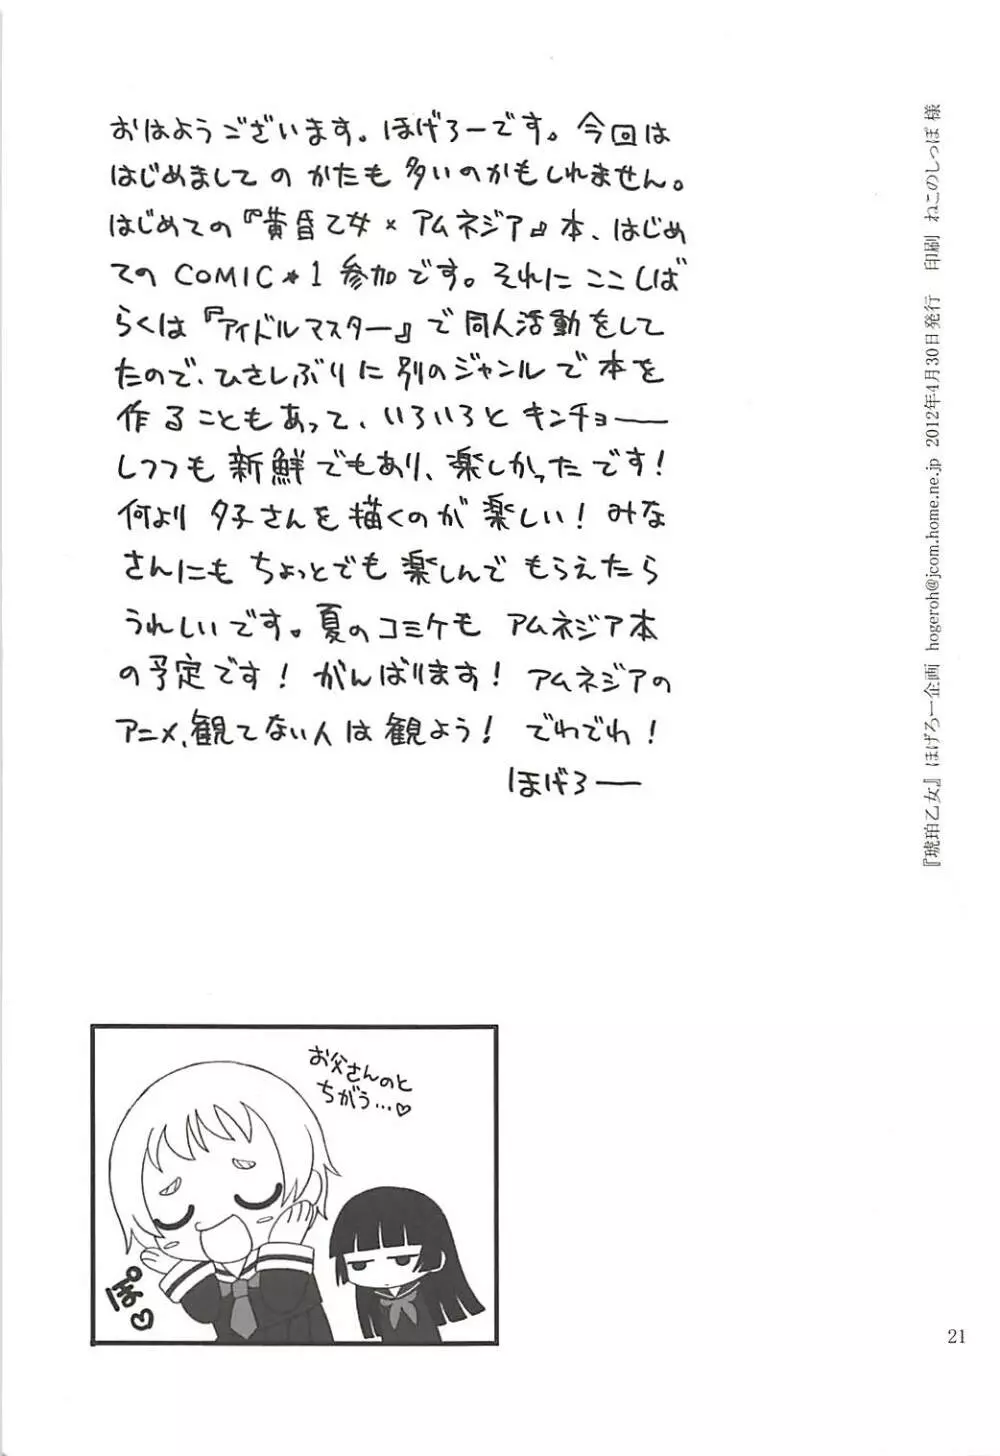 おはようございます。ほげろーです。今回は
はじめましての かたも 多いのかもしれません。
はじめての『黄昏乙女×アムネジア』本、はじめ
ての COMIC★1 参加です。それに ここしば
らくは『アイドルマスター』で 同人活動をして
たので、ひさしぶりに 別のジャンルで 本を
作ることもあって、いろいろと キンチョー
しつつも 新鮮でもあり、楽しかったです！
何より 夕子さんを 描くのが 楽しい！ みな
さんにも ちょっとでも 楽しんで もらえたら
うれしいです。夏のコミケも アムネジア本
の予定です！ がんばります！ アムネジアの
アニメ、観てない人は 観よう！ でわでわ！
ほげろー
『琥珀乙女』 ほげろー企画 hogeroh@jcom.home.ne.jp 2012年4月30日発行 印刷 ねこのしっぽ 様
お父さんのと
ちがう…♡
ぽ♡
21